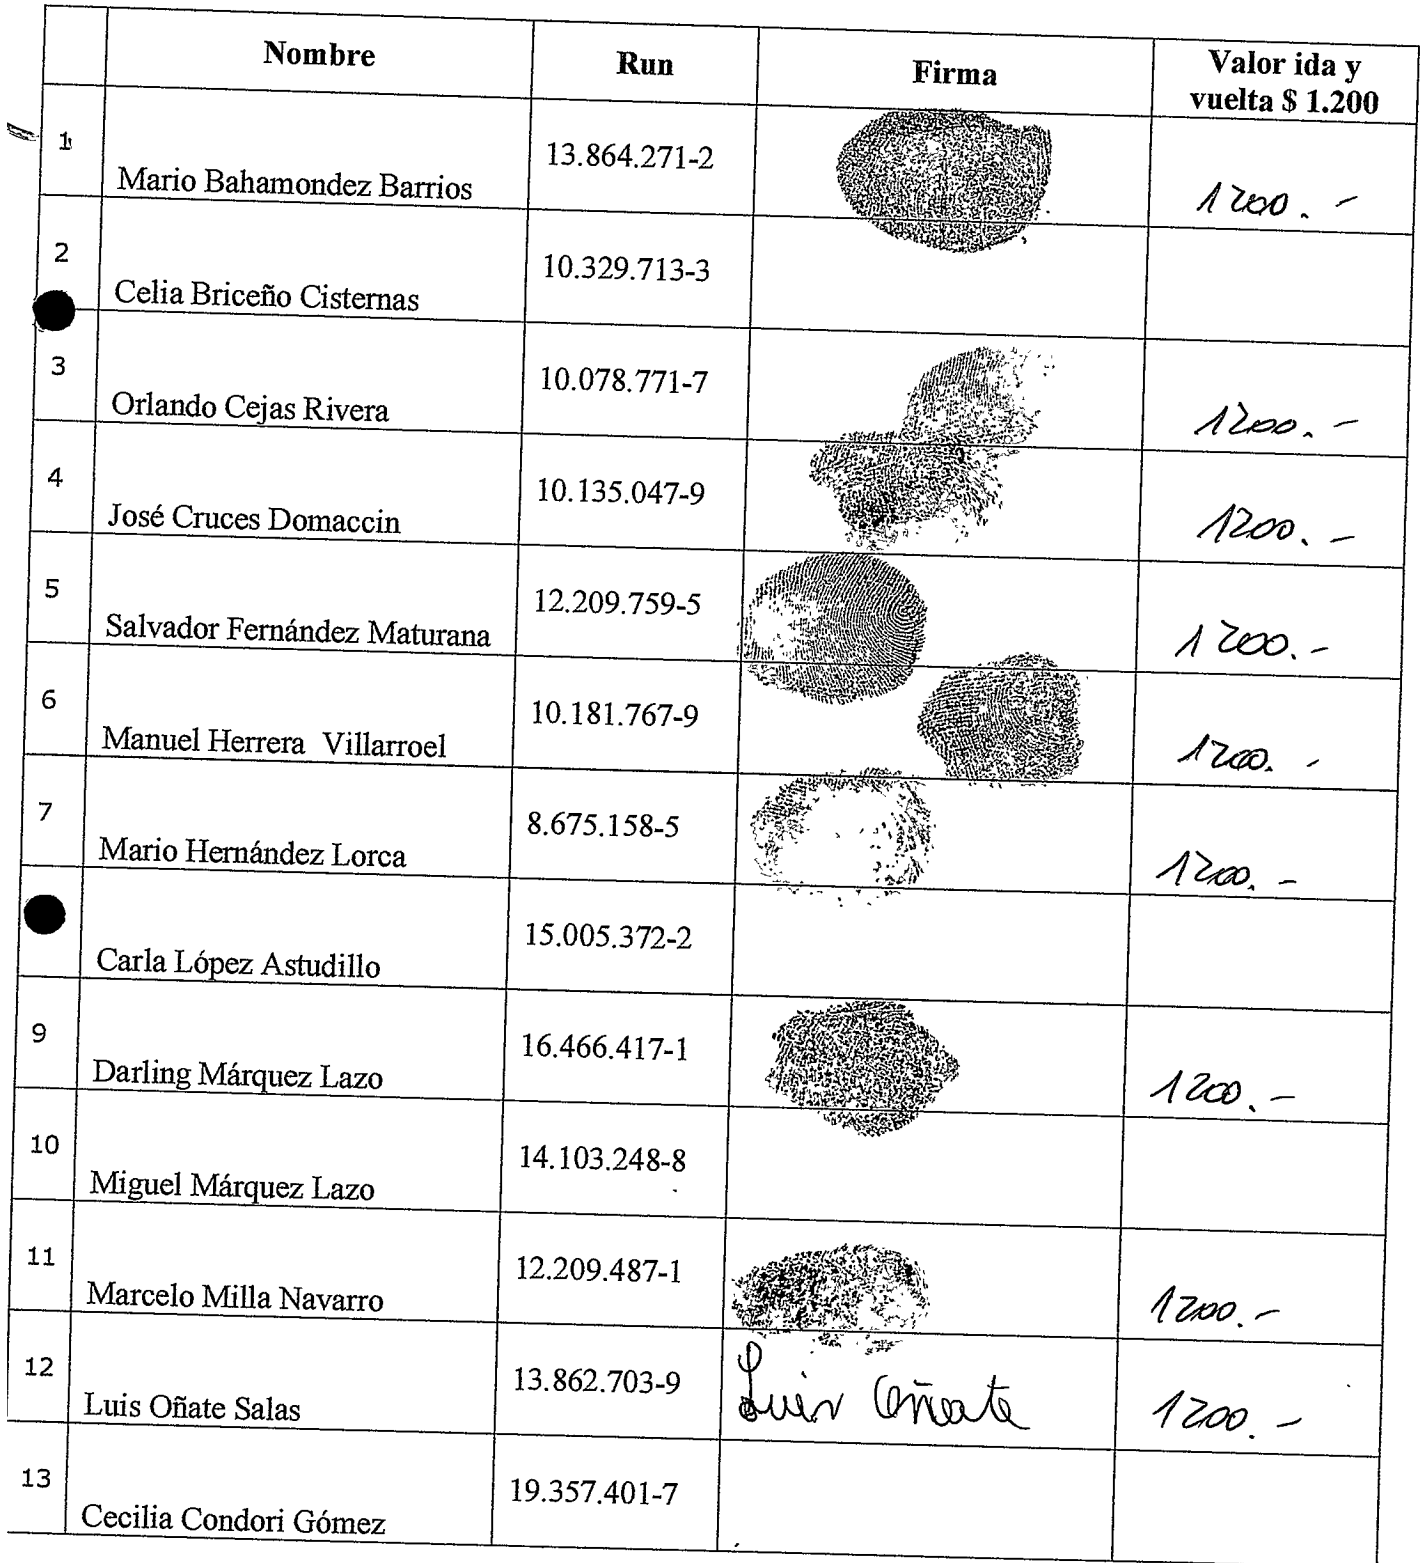 Nombre Run Firma Valor ida y
vuelta $ 1.200
1 Mario Bahamondez Barrios 13.864.271-2 1200.-
2 Celia Briceño Cisternas 10.329.713-3
3 Orlando Cejas Rivera 10.078.771-7 1200.-
4 José Cruces Domaccin 10.135.047-9 1200.-
5 Salvador Fernández Maturana 12.209.759-5 1200.-
6 Manuel Herrera Villarroel 10.181.767-9 1200.-
7 Mario Hernández Lorca 8.675.158-5 1200.-
Carla López Astudillo 15.005.372-2
9 Darling Márquez Lazo 16.466.417-1 1200.-
10 Miguel Márquez Lazo 14.103.248-8
11 Marcelo Milla Navarro 12.209.487-1 1200.-
12 Luis Oñate Salas 13.862.703-9 Luis Oñate 1200.-
13 Cecilia Condori Gómez 19.357.401-7